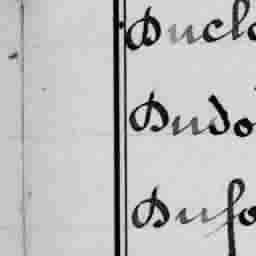 Ducl
Dudo
Dufo